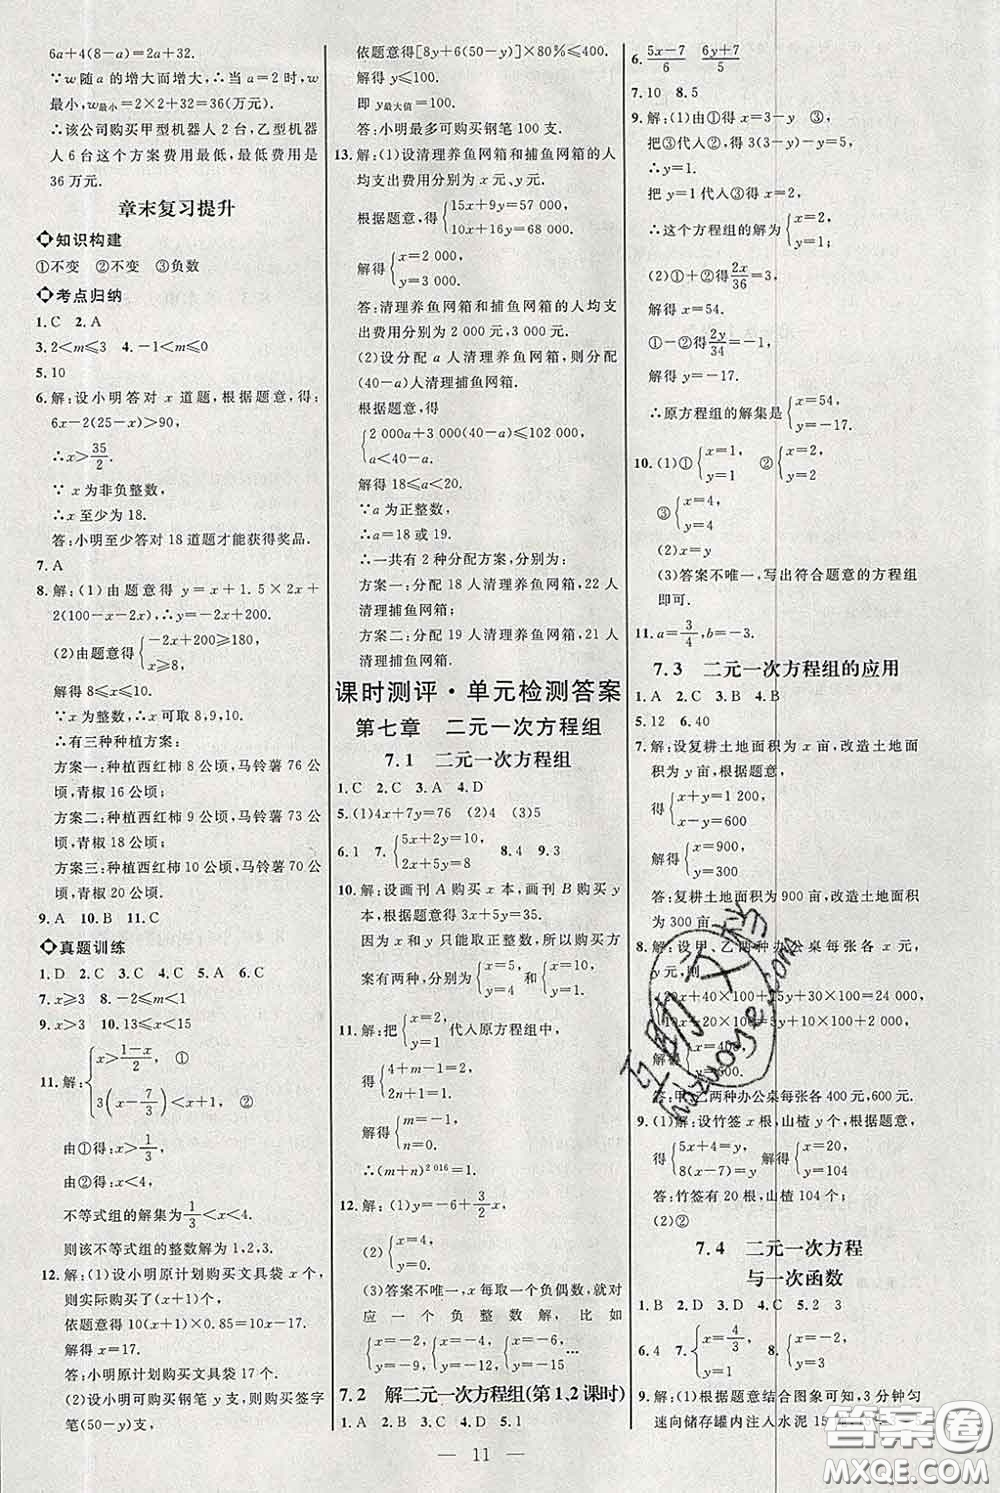 6a+4(8-a)=2a+32.
∵w随a的增大而增大,∴当a=2时,w
最小,w最小=2×2+32=36(万元).
∴该公司购买甲型机器人2台,乙型机器
人6台这个方案费用最低,最低费用是
36万元.
章末复习提升
知识构建
①不变 ②不变 ③负数
考点归纳
1.C 2.A
3.2<m≤3 4.-1<m≤0
5.10
6.解:设小明答对x道题,根据题意,得:
6x-2(25-x)>90,
∴x>35/2.
∵x为非负整数,
∴x至少为18.
答:小明至少答对18道题才能获得奖品.
7.A
8.解:(1)由题意得y=x+1.5×2x+
2(100-x-2x),∴y=-2x+200.
(2)由题意得{-2x+200≥180,
x≥8,
解得8≤x≤10.
∵x为整数,∴x可取8,9,10.
∴有三种种植方案:
方案一:种植西红柿8公顷,马铃薯76公
顷,青椒16公顷;
方案二:种植西红柿9公顷,马铃薯73公
顷,青椒18公顷;
方案三:种植西红柿10公顷,马铃薯70公
顷,青椒20公顷.
9.A 10.B 11.C
真题训练
1.D 2.C 3.C 4.C 5.A 6.C
7.x≥3 8.-2≤m<1
9.x>3 10.13≤x<15
11.解:{x>(1-x)/2, ①
3(x-7/3)<x+1, ②
由①得:x>1/3,
由②得:x<4,
不等式组的解集为1/3<x<4.
则该不等式组的整数解为1,2,3.
12.解:(1)设小明原计划购买文具袋x个,
则实际购买了(x+1)个,
依题意得10(x+1)×0.85=10x-17.
解得x=17.
答:小明原计划购买文具袋17个.
(2)设小明可购买钢笔y支,则购买签字
笔(50-y)支,
依题意得[8y+6(50-y)]×80%≤400.
解得y≤100.
即y最大值=100.
答:小明最多可购买钢笔100支.
13.解:(1)设清理养鱼网箱和捕鱼网箱的人
均支出费用分别为x元、y元.
根据题意,得{15x+9y=57 000,
10x+16y=68 000.
解得{x=2 000,
y=3 000.
答:清理养鱼网箱和捕鱼网箱的人均支
出费用分别为2 000元,3 000元.
(2)设分配a人清理养鱼网箱,则分配
(40-a)人清理捕鱼网箱.
根据题意,得
{2 000a+3 000(40-a)≤102 000,
a<40-a.
解得18≤a<20.
∵a为正整数,
∴a=18或19.
∴一共有2种分配方案,分别为:
方案一:分配18人清理养鱼网箱,22人
清理捕鱼网箱;
方案二:分配19人清理养鱼网箱,21人
清理捕鱼网箱.
课时测评·单元检测答案
第七章 二元一次方程组
7.1 二元一次方程组
1.C 2.C 3.A 4.D
5.(1)4x+7y=76 (2)4 (3)5
6.1 7.{5x+2y=10,
2x+5y=8 8.4 9.3
10.解:设画刊A购买x本,画刊B购买y
本,根据题意,得3x+5y=35.
因为x和y只能取正整数,所以购买方
案有两种,分别为{x=5,
y=4和{x=10,
y=1.
11.解:把{x=2,
y=1代入原方程组中,
得{4+m-1=2,
4-n+1=5.
解得{m=-1,
n=0.
∴(m+n)²⁰¹⁶=1.
12.解:(1)y=-6+3/2x,
(2){x=4,
y=0.
(3)答案不唯一,x每取一个负偶数,就对
应一个负整数解,比如
{x=-2,
y=-9,{x=-4,
y=-12,{x=-6,
y=-15…
7.2 解二元一次方程组(第1、2课时)
1.A 2.C 3.C 4.D 5.1
6.(5x-7)/6 (6y+7)/5
7.10 8.5
9.解:(1)由①得x=3-y ③,
把③代入②,得3(3-y)-y=5,
∴y=1.
把y=1代入③得x=2,
∴这个方程组的解为{x=2,
y=1;
(2)①+②得2x/36=3,
解得x=54.
①-②得2y/34=-1,
解得y=-17.
∴原方程组的解集是{x=54,
y=-17.
10.(1)①{x=1,
y=1 ②{x=2,
y=2
③{x=4,
y=4
(2)x=y
(3)答案不唯一,写出符合题意的方程组
即可.
11.a=3/4,b=-3.
7.3 二元一次方程组的应用
1.A 2.C 3.B 4.B
5.12 6.40
7.解:设复耕土地面积为x亩,改造土地面
积为y亩,根据题意,
得{x+y=1 200,
x-y=600
解得{x=900,
y=300
答:复耕土地面积为900亩,改造土地面
积为300亩.
8.解:设甲、乙两种办公桌每张各x元,
y元,则
解得{x=400,
y=600.
答:甲、乙两种办公桌每张各400元,600元.
9.(1)解:设竹签x根,山楂y个,
得{5x+4=y,
8(x-7)=y 解得{x=20,
y=104
答:竹签有20根,山楂104个;
(2)②
7.4 二元一次方程
与一次函数
1.B 2.D 3.C 4.D 5.2 3
6.4 7.{x=4/3,
y=1
9.解:(1)根据题意结合图象可知,3分钟匀
速向储存罐内注入水泥15
11
互助文档
huzuoye.com
答案圈
MXQE.COM